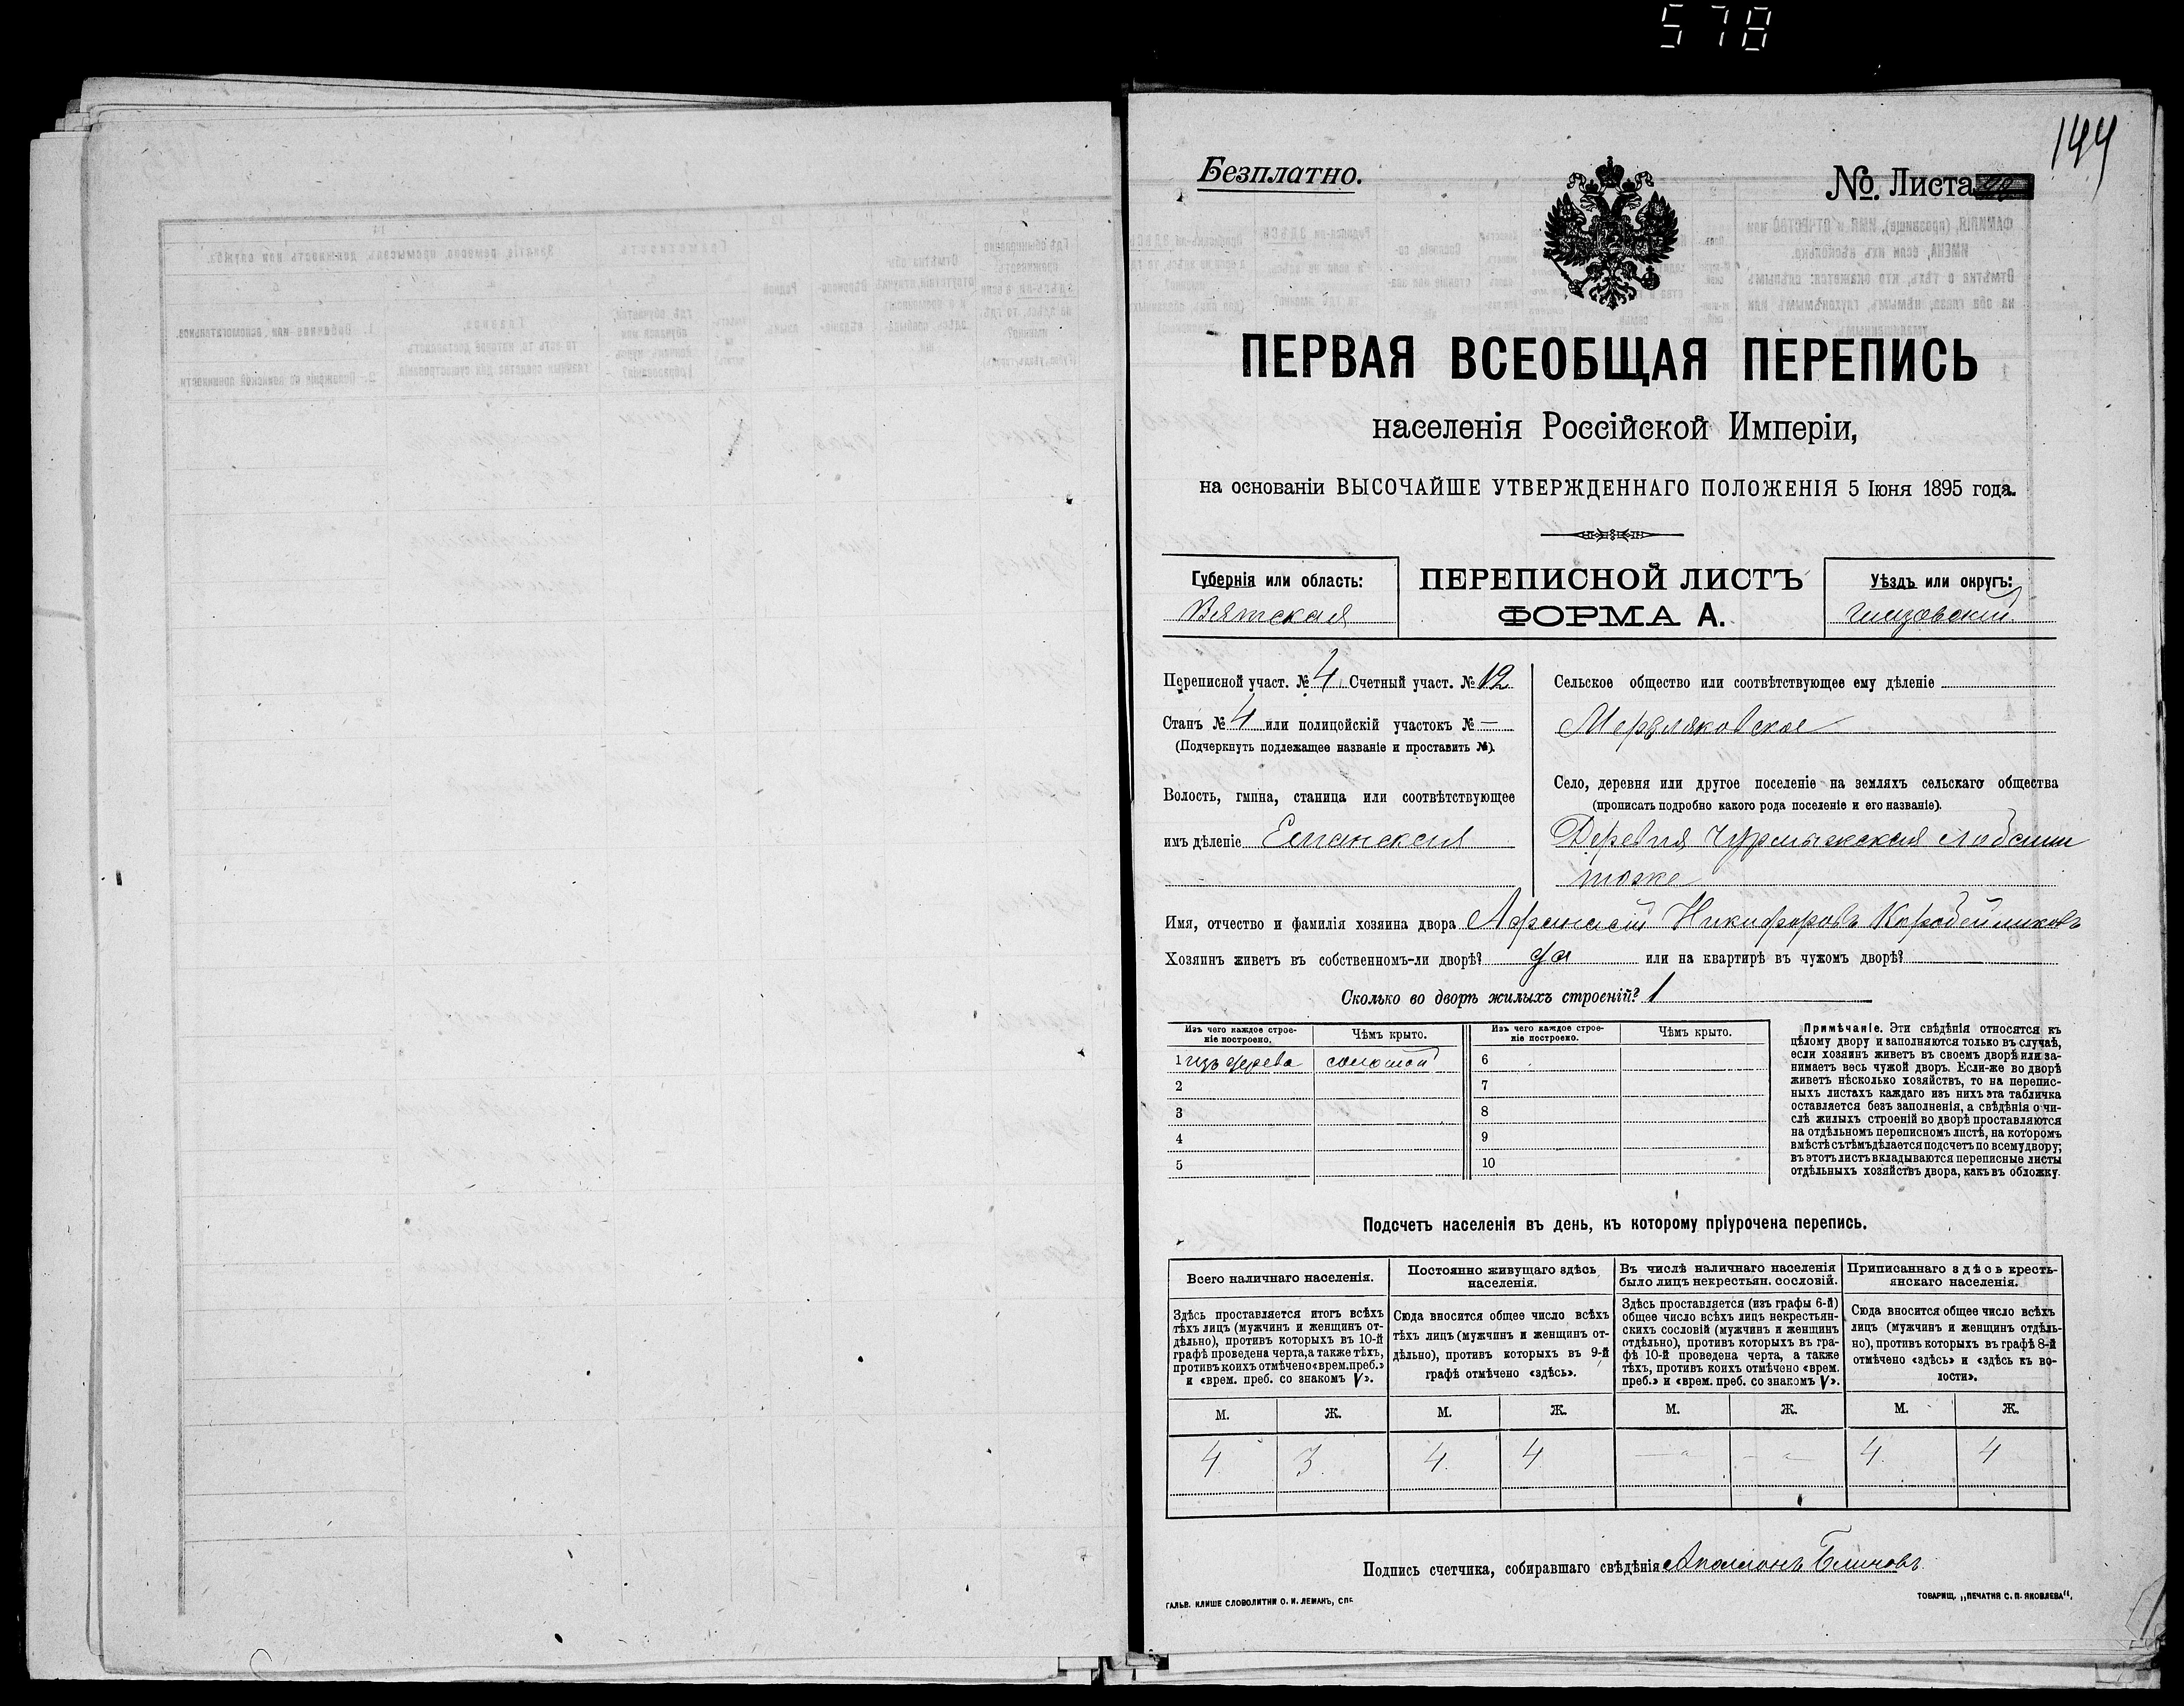 578
144
Безплатно.
№. Листа
ПЕРВАЯ ВСЕОБЩАЯ ПЕРЕПИСЬ
населенія Россійской Имперіи,
на основаніи ВЫСОЧАЙШЕ УТВЕРЖДЕННАГО ПОЛОЖЕНІЯ 5 Іюня 1895 года.
Губернія или область:
Вятская
ПЕРЕПИСНОЙ ЛИСТЪ
ФОРМА А.
Уѣздъ или округъ:
Глазовскій
Переписной участ. № 4 Счетный участ. № 12
Станъ № 4 или полицейскій участокъ № —
(Подчеркнуть подлежащее названіе и проставить №).
Волость, гмина, станица или соотвѣтствующее
имъ дѣленіе Елганская
Сельское общество или соотвѣтствующее ему дѣленіе
Мерзляковское
Село, деревня или другое поселеніе на земляхъ сельскаго общества
(прописать подробно какого рода поселеніе и его названіе).
Деревня
тоже
Имя, отчество и фамилія хозяина двора Афанасій Никифоровъ Коробейниковъ
Хозяинъ живетъ въ собственномъ-ли дворѣ? да или на квартирѣ въ чужомъ дворѣ?
Сколько во дворѣ жилыхъ строеній? 1
Изъ чего каждое строе-
ніе построено.
Чѣмъ крыто.
Изъ чего каждое строе-
ніе построено.
Чѣмъ крыто.
1 изъ дерева соломой 6
2 7
3 8
4 9
5 10
Примѣчаніе. Эти свѣдѣнія относятся къ
цѣлому двору и заполняются только въ случаѣ,
если хозяинъ живетъ въ своемъ дворѣ или за-
нимаетъ весь чужой дворъ. Если-же во дворѣ
живетъ нѣсколько хозяйствъ, то на перепис-
ныхъ листахъ каждаго изъ нихъ эта табличка
оставляется безъ заполненія, а свѣдѣнія о чи-
слѣ жилыхъ строеній во дворѣ проставляются
на отдѣльномъ переписномъ листѣ, на которомъ
вмѣстѣ съ тѣмъ дѣлается подсчетъ по всему двору;
въ этотъ листъ вкладываются переписные листы
отдѣльныхъ хозяйствъ двора, какъ въ обложку.
Подсчетъ населенія въ день, къ которому пріурочена перепись.
Всего наличнаго населенія.
Здѣсь проставляется итогъ всѣхъ
тѣхъ лицъ (мужчинъ и женщинъ от-
дѣльно), противъ которыхъ въ 10-й
графѣ проведена черта, а также тѣхъ,
противъ коихъ отмѣчено «врем. преб.»
и «врем. преб. со знакомъ V».
Постоянно живущаго здѣсь
населенія.
Сюда вносится общее число всѣхъ
тѣхъ лицъ (мужчинъ и женщинъ от-
дѣльно), противъ которыхъ въ 9-й
графѣ отмѣчено «здѣсь».
Въ числѣ наличнаго населенія
было лицъ некрестьян. сословій.
Здѣсь проставляется (изъ графы 6-й)
общее число всѣхъ лицъ некрестьян-
скихъ сословій (мужчинъ и женщинъ
отдѣльно), противъ которыхъ въ гра-
фѣ 10-й проведена черта, а также
тѣхъ, противъ коихъ отмѣчено «врем.
преб.» и «врем. преб. со знакомъ V».
Приписаннаго здѣсь кресть-
янскаго населенія.
Сюда вносится общее число всѣхъ
лицъ (мужчинъ и женщинъ отдѣль-
но), противъ которыхъ въ графѣ 8-й
отмѣчено «здѣсь» и «здѣсь къ во-
лости».
М. Ж. М. Ж. М. Ж. М. Ж.
4. 3. 4. 4 — " — " — 4. 4
Подпись счетчика, собиравшаго свѣдѣнія Аполлонъ Блиновъ
ГАЛЬВ. КЛИШЕ СЛОВОЛИТНИ О. И. ЛЕМАНЪ, СПБ.
ТОВАРИЩ. „ПЕЧАТНЯ С. П. ЯКОВЛЕВА".